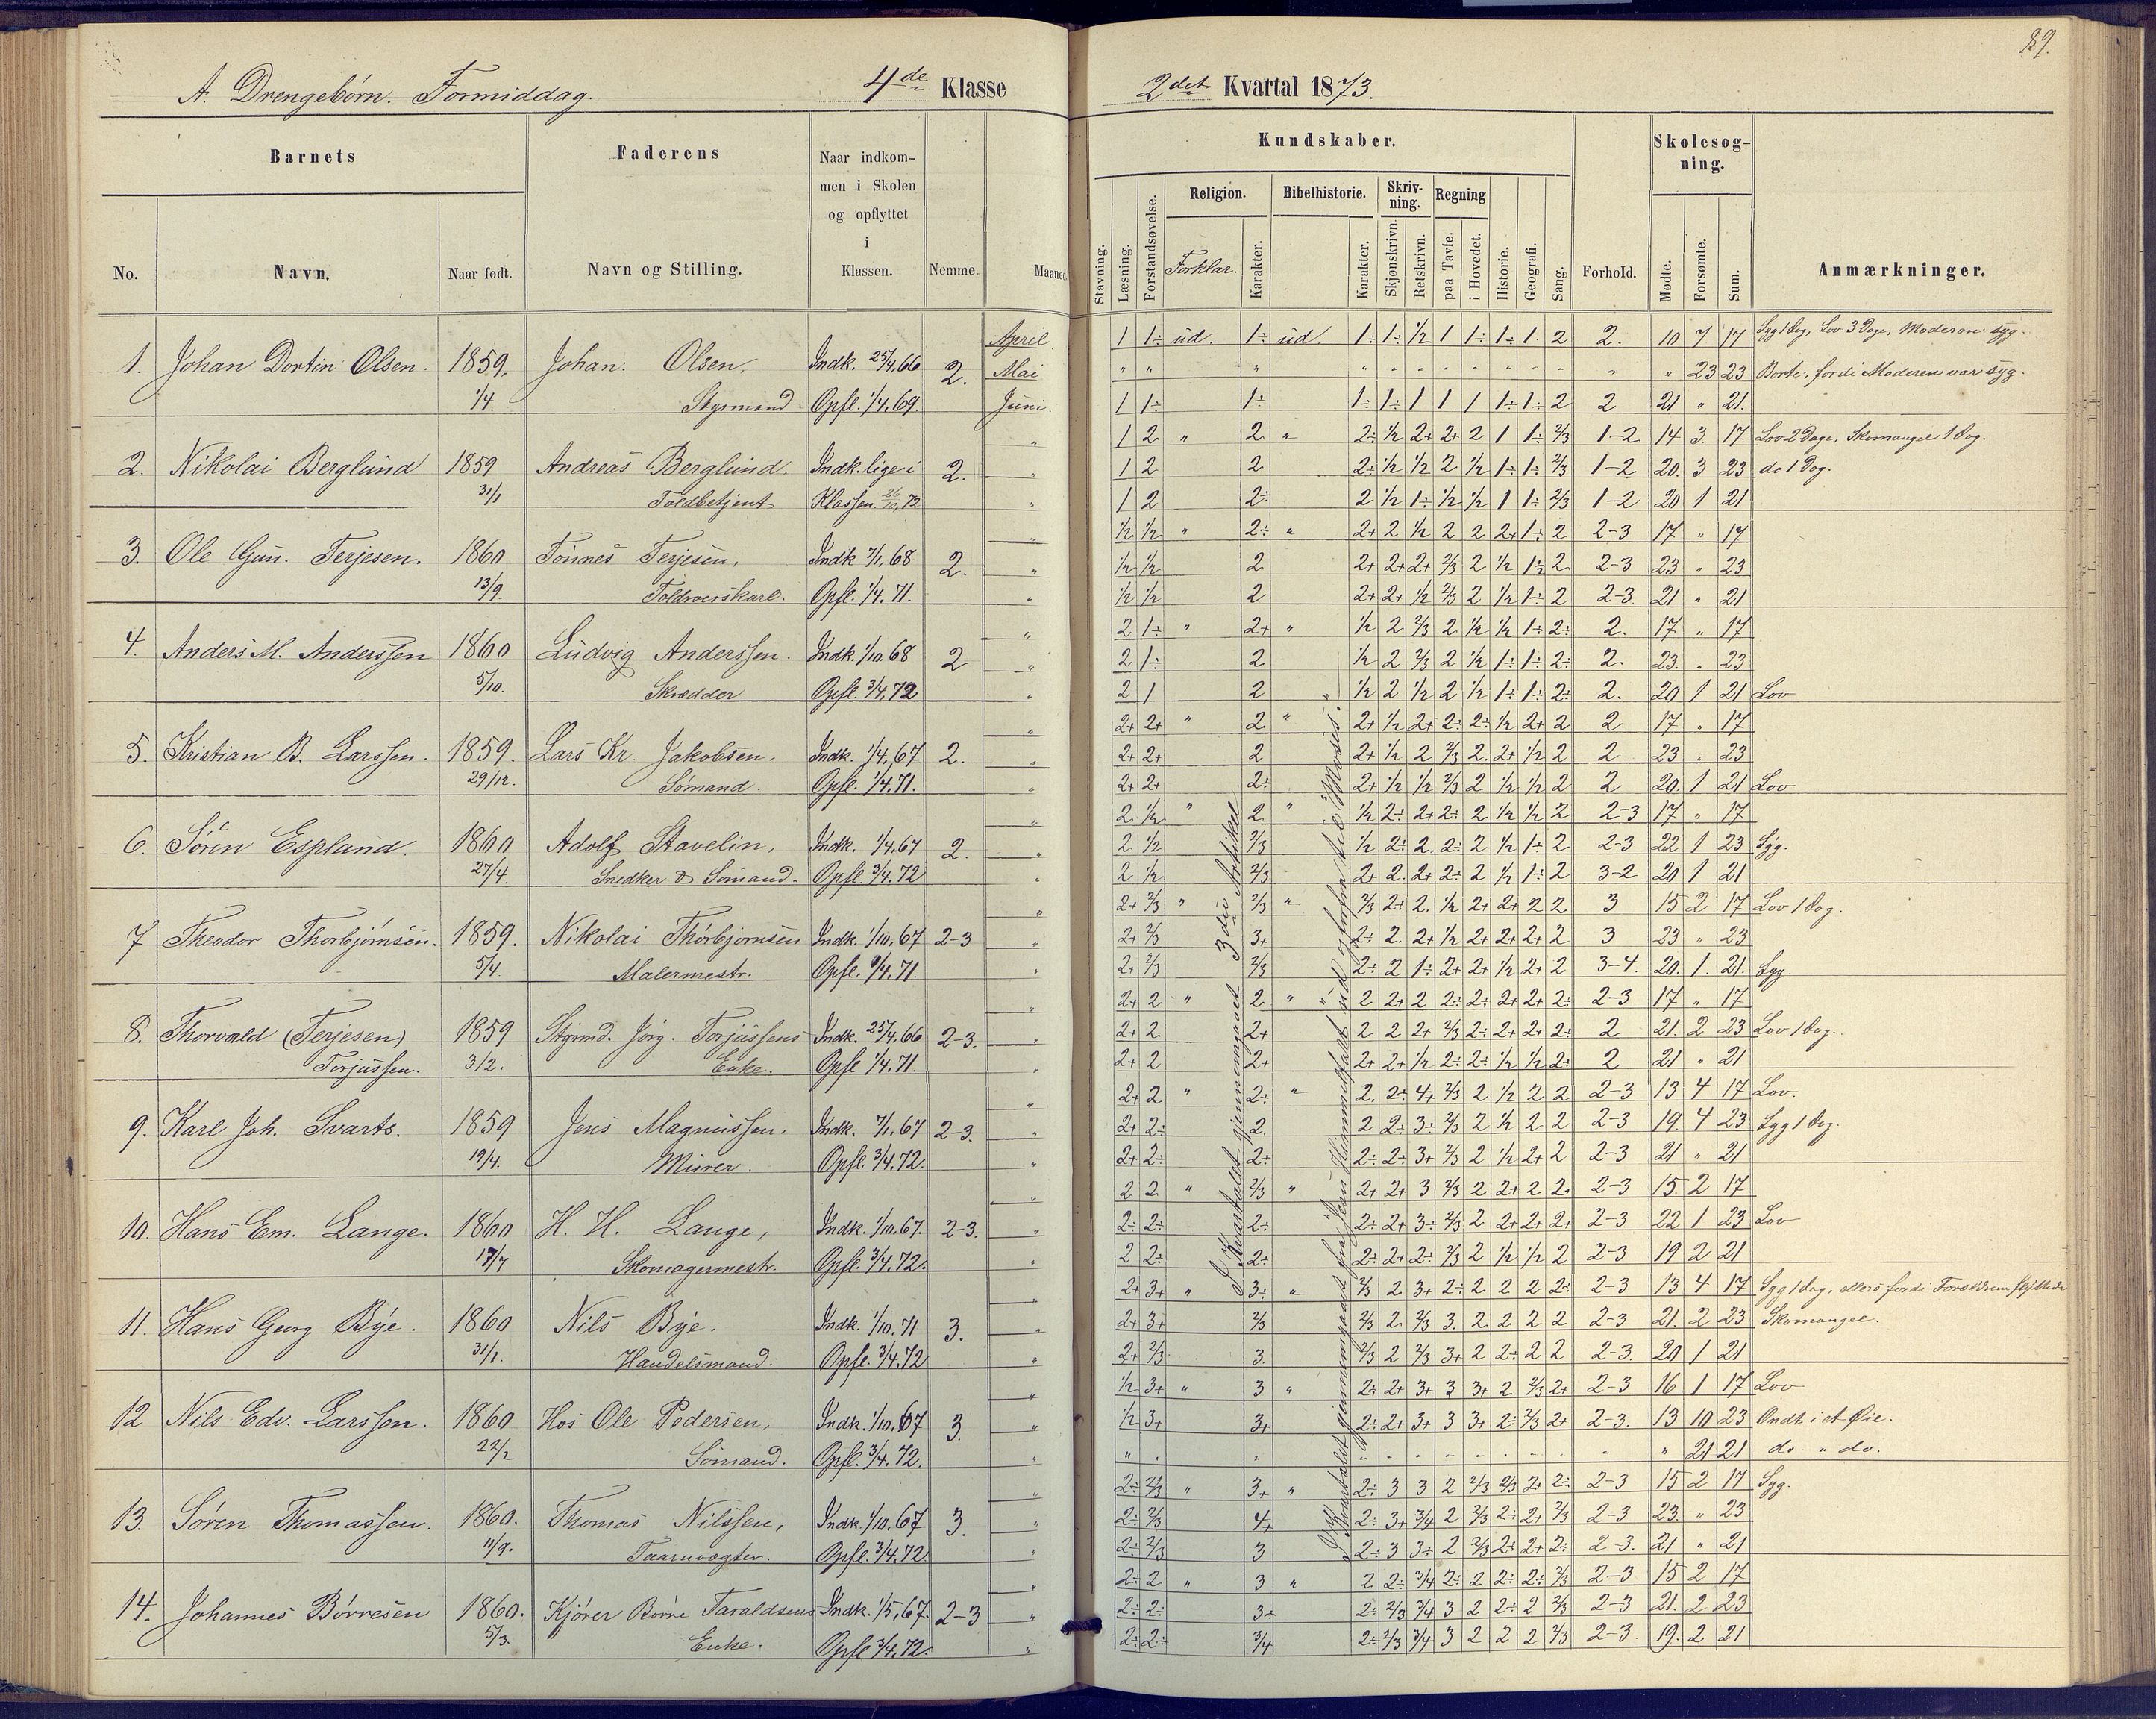 89.
A. Drengebørn. Formiddag. 4de Klasse 2det Kvartal 1873.
Barnets
Faderens
Naar indkommen i Skolen og opflyttet i Klassen.
Kundskaber.
Skolesøgning.
Religion. Bibelhistorie. Skrivning. Regning
No. Navn. Naar født. Navn og Stilling. Nemme. Maaned.
Stavning. Læsning. Forstandsøvelse. Forklar. Karakter. Karakter. Skjønskrivn. Retskrivn. paa Tavle. i Hovedet. Historie. Geografi. Sang. Forhold. Mødte. Forsømte. Sum. Anmærkninger.
April 1 1÷ ud. 1÷ ud. 1÷ 1÷ 1/2 1 1÷ 1÷ 1. 2 2. 10 7 17 Syg 1 Dag, Lov 3 Dage, Moderen syg.
1. Johan Dortin Olsen. 1859. Johan Olsen, Indk. 25/4.66 2. Mai " " " 23 23 Borte, fordi Moderen var syg.
1/4. Styrmand Opfl. 1/4.69. Juni. 1 1÷ 1÷ 1÷ 1÷ 1 1 1 1÷ 1÷ 2 2 21 " 21.
" 1 2 " 2 " 2÷ 1/2 2+ 2+ 2 1 1÷ 2/3 1-2 14 3 17 Lov 2 Dage, Skomangel 1 Dag.
2. Nikolai Berglund 1859 Andreas Berglund. Indk. lige i 2. " 1 2 2 2÷ 1/2 1/2 2 1/2 1÷ 1÷ 2/3 1-2 20. 3 23 do 1 Dag.
31/1 Toldbetjent Klassen 26/10.72 " 1 2 2÷ 2 1/2 1÷ 1/2 1/2 1 1÷ 2/3 1-2 20 1 21
" 1/2 1/2 " 2÷ " 2+ 2 1/2 2 2 2+ 1÷ 2 2-3 17 " 17
3. Ole Gun. Terjesen. 1860 Tönnes Terjesen, Indk 7/1.68 2. " 1/2 1/2 2 2+ 2+ 2+ 2/3 2 1/2 1÷ 2 2-3 23 " 23
13/9. Toldroerskarl. Opfl. 1/4.71. " 1/2 1/2 2 2+ 2+ 1/2 2/3 2 1/2 1÷ 2 2-3 21 " 21
" 2 1÷ " 2+ " 1/2 2 2/3 2 1/2 1/2 1÷ 2÷ 2. 17 " 17
4. Anders M. Anderssen 1860 Ludvig Anderssen. Indk. 1/10 68 2 " 2 1÷ 2 1/2 2 2/3 2 1/2 1÷ 1÷ 2÷ 2. 23. " 23
5/10. Skrædder Opfl. 3/4.72 " 2 1 2 1/2 2 1/2 2 1/2 1÷ 1÷ 2÷ 2. 20 1 21 Lov
" 2+ 2+ " 2 " 2+ 1/2 2+ 2÷ 2÷ 1/2 2+ 2 2 17 " 17
5. Kristian B. Larssen. 1859. Lars Kr. Jakobsen, Indk. 1/4.67 2. " 2+ 2+ 2 2+ 1/2 2 2/3 2. 2+ 1/2 2 2 23 " 23
29/12. Sömand. Opfl. 1/4.71. " 2+ 2+ 2÷ 2+ 1/2 1/2 2/3 2 1/2 1/2 2 2 20. 1 21 Lov
" 2 1/2 " 2 " 1/2 2÷ 2+ 2÷ 2 1/2 1/2 2 2-3 17 " 17
6. Sören Espland. 1860 Adolf Stavelin, Indk. 1/4.67 2. " 2 1/2 2/3 1/2 2÷ 2. 2÷ 2 1/2 1÷ 2 2-3 22 1 23 Syg.
27/4. Snedker & Sömand. Opfl. 3/4.72 " 2 1/2 2/3 2+ 2. 2+ 2÷ 2 1/2 1÷ 2 3-2 20 1 21
" 2+ 2/3 " 2/3 " 2/3 2÷ 2. 1/2 2+ 2+ 2 2 3 15 2 17 Lov 1 Dag.
7 Theodor Thorbjörnsen. 1859. Nikolai Thorbjörnsen Indk. 1/10.67 2-3 " 2+ 2/3 3+ 2÷ 2. 2+ 1/2 2+ 2+ 2+ 2 3 23 " 23
5/4. Malermestr. Opfl. 1/4.71. " 2+ 2/3 2/3 2÷ 2 1÷ 2+ 2+ 1/2 2+ 2 3-4. 20. 1. 21. Syg.
" 2+ 2 " 2 " 2 2+ 2 2÷ 2÷ 2+ 2+ 2÷ 2-3 17 " 17
8. Thorvald (Terjesen) 1859 Styrmd. Jörg. Torjussens Indk. 25/4.66 2-3. " 2+ 2 2+ 2 2 2+ 2/3 2÷ 2+ 2+ 2÷ 2 21. 2 23 Lov 1 Dag.
Torjussen. 3/2. Enke. Opfl 1/4.71. " 2+ 2 2+ 2+ 2+ 1/2 2÷ 2÷ 1/2 1/2 2÷ 2 21 " 21
" 2+ 2 " 2÷ " 2. 2÷ 4+ 2/3 2 1/2 2 2 2-3 13 4 17 Lov.
9. Karl Joh. Svarts. 1859 Jens Magnussen. Indk. 7/1.67 2-3. " 2+ 2÷ 2. 2 2÷ 3÷ 2/3 2 1/2 2 2 2-3 19. 4 23 Syg 1 Dag.
19/4. Murer. Opfl. 3/4.72. " 2+ 2÷ 2÷ 2÷ 2÷ 3+ 2/3 2 1/2 2+ 2 2-3 21 " 21
" 2 2 " 2/3 " 2+ 2+ 3 2/3 2 2+ 2 2÷ 2-3 15. 2 17
10. Hans Em. Lange. 1860 H. H. Lange, Indk. 1/10.67. 2-3. " 2÷ 2÷ 2÷ 2÷ 2+ 3÷ 2/3 2 2+ 2+ 2+ 2-3 22 1 23 Lov
17/7 Skomagermestr. Opfl. 3/4.72. " 2 2÷ 2÷ 2÷ 2+ 2÷ 2/3 2 1/2 1/2 2 2-3 19 2 21
" 2+ 3+ " 3÷ " 2/3 2 3+ 2÷ 2 2 2 2÷ 2-3 13 4 17 Syg 1 Dag, ellers fordi Forældrene flyttede
11. Hans Georg Bye. 1860 Nils Bye. Indk. 1/10.71 3. " 2+ 3+ 2/3 2/3 2 2/3 3. 2. 2 2 2 2-3 21. 2 23 Skomangel.
31/1. Handelsmand. Opfl. 3/4.72 " 2+ 2/3 3. 2/3 2 2/3 3+ 2 2÷ 2 2 2-3. 20 1 21
" 1/2 3+ " 3 " 2÷ 2+ 3+ 3 3+ 2 2/3 2+ 2-3 16 1 17 Lov
12 Nils Edv. Larssen. 1860 Hos Ole Pedersen, Indk. 1/10.67 3. " 1/2 3+ 3+ 2÷ 2+ 3+ 3 3+ 2÷ 2/3 2+ 2-3. 13 10 23 Ondt i et Øie.
22/2 Sömand. Opfl. 3/4.72. " " 21 21 do. " do.
" 2÷ 2/3 " 3+ " 2÷ 3 3 2 2/3 2/3 2+ 2÷ 2-3 15 2 17 Syg.
13. Sören Thomassen. 1860. Thomas Nilssen, Indk. 1/10.67 3. " 2÷ 2/3 4+ 2÷ 3+ 3/4 2 2/3 2÷ 2+ 2/3 2-3 23. " 23
11/9. Taarnvogter. Opfl. 3/4.72 " 2÷ 2/3 3 2÷ 3 3÷ 2 2/3 2÷ 2+ 2÷ 2-3. 21 " 21
" 2÷ 2 " 3 " 2 2÷ 3/4 2÷ 2 2÷ 2÷ 2/3 2-3 15 2 17
14. Johannes Börresen 1860. Kjörer Börre Taraldsens Indk. 1/5.67. 2-3 " 2÷ 2÷ 3÷ 2÷ 2/3 3/4 3 2 2÷ 2 2/3 2-3 21. 2 23
5/3. Enke. Opfl 3/4.72. " 2÷ 2÷ 3/4 2÷ 2/3 3/4 3 2 2 2 2/3 2-3. 19. 2 21
I Kvartalet gjennemgaaet 3die Artikel
I Kvartalet gjennemgaaet fra Jesu Himmelfart ud og forfra til "Moses".